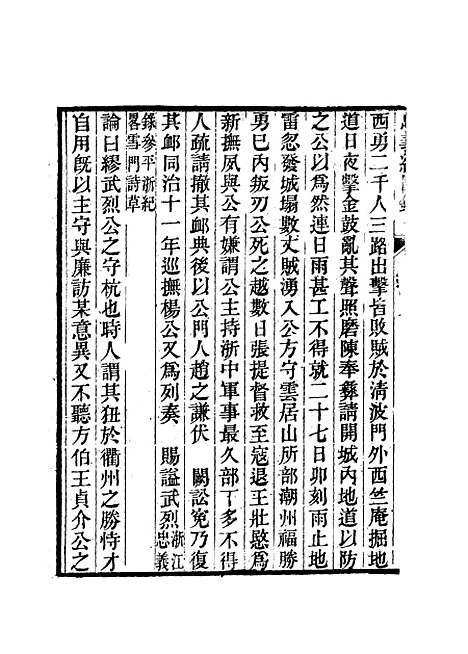 西勇二千人三路出擊皆敗賊於清波門外西竺庵掘地
道日夜擊金鼓亂其聲照磨陳奉彝請開城內地道以防
之公以爲然連日雨甚工不得就二十七日卯刻雨止地
雷忽發城塌數丈賊湧入公方守雲居山所部潮州福勝
勇已內叛刃公死之越數日張提督救至寇退王壯愍爲
新撫夙與公有嫌謂公主持浙中軍事最久部丁多不得
人疏請撤其卹典後以公門人趙之謙伏 闕訟冤乃復
其卹同治十一年巡撫楊公又爲列奏 賜謚武烈浙江忠義
錄參平浙紀畧雪門詩草
論曰繆武烈公之守杭也時人謂其狃於衢州之勝恃才
自用旣以主守與廉訪某意異又不聽方伯王貞介公之